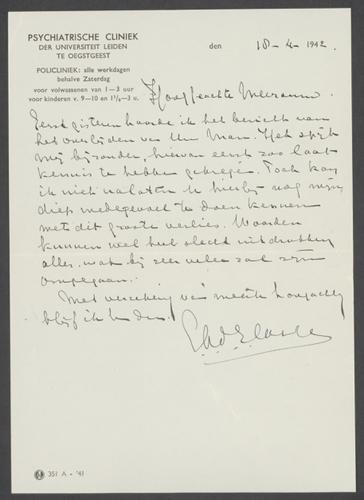 PSYCHIATRISCHE CLINIEK
DER UNIVERSITEIT LEIDEN
TE OEGSTGEEST
den 18-4-1942.
POLICLINIEK: alle werkdagen
behalve Zaterdag
voor volwassenen van 1—3 uur
voor kinderen v. 9—10 en 1½—3 u.
Hooggeachte Mevrouw.
Eerst gisteren hoorde ik het bericht van
het overlijden van Uw Man. Het spijt
mij bijzonder, hiervan eerst zoo laat
kennis te hebben gekregen. Toch kan
ik niet nalaten U hierbij nog mijn
diep medegevoel te doen kennen
met dit groote verlies. Woorden
kunnen wel heel slecht uitdrukken
alles, wat bij zeer velen zal zijn
omgegaan.
Met verzekering van meeste hoogachting
blijf ik
351 A - '41